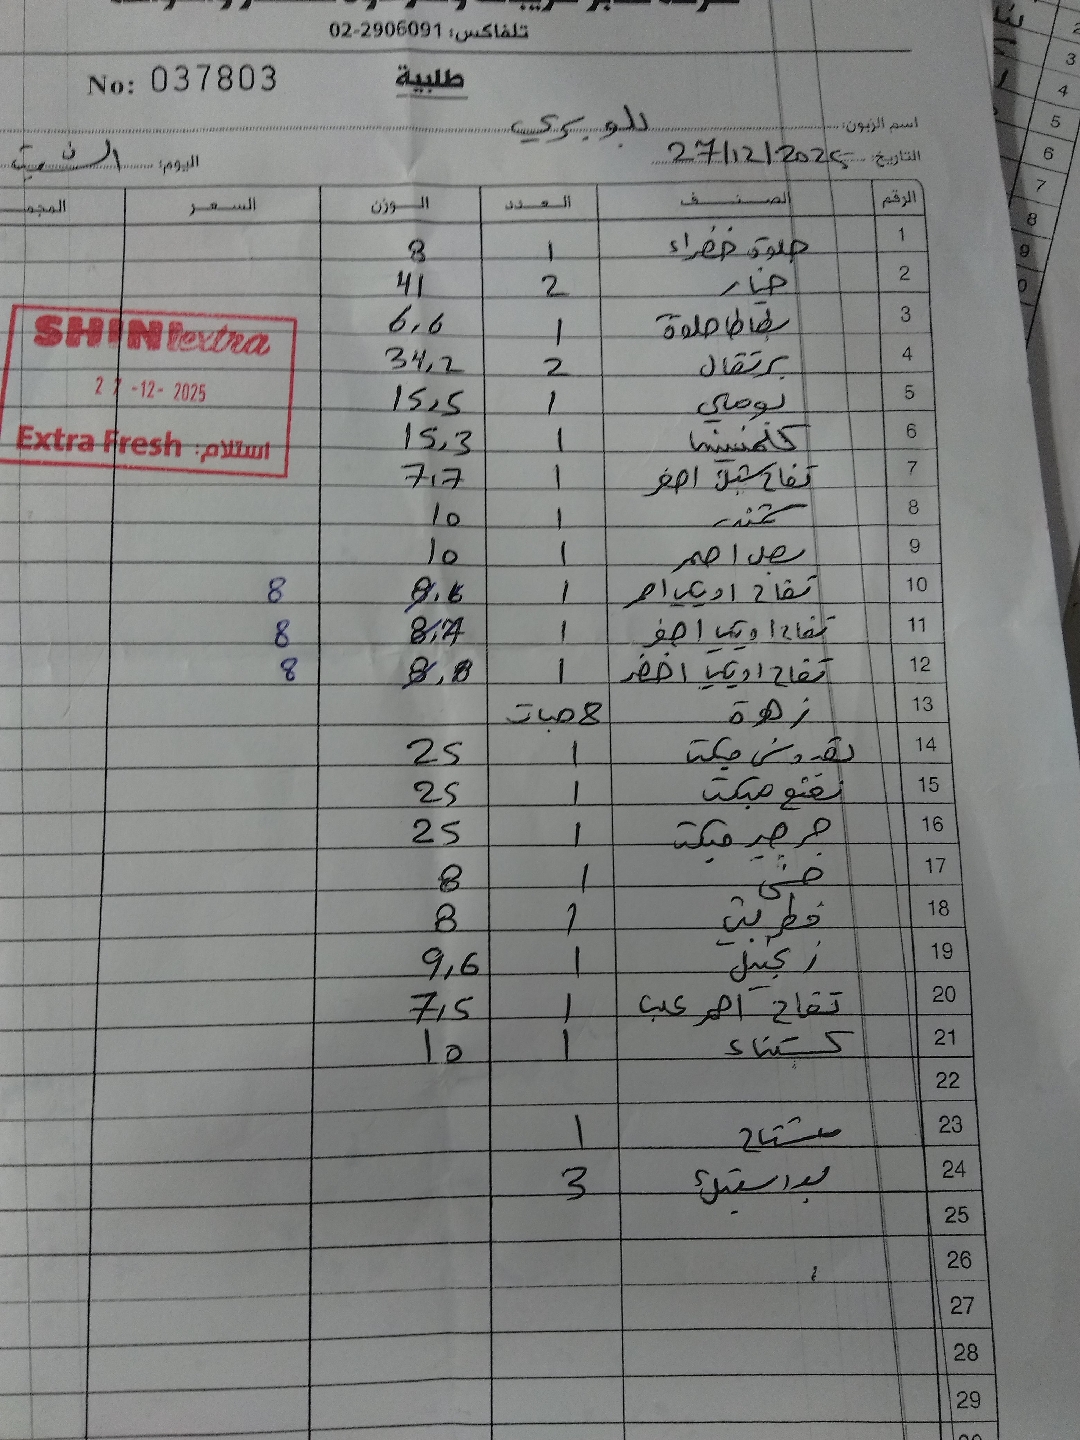 تلفاكس: 02-2906091
No: 037803 طلبية
اسم الزبون:
التاريخ: 27/12/2025 اليوم: السبت
الرقم الصنف العدد الوزن السعر
1 حلوة خضراء 1 8
2 خيار 2 41
3 بطاطا حلوة 1 6,6
4 برتقال 2 34,2
5 بوملي 1 15,5
6 كلمنتينا 1 15,3
7 تفاح اصفر 1 7,7
8 شمندر 1 10
9 بصل احمر 1 10
10 تفاح احمر 1 8
11 تفاح اصفر 1 8
12 تفاح اخضر 1 8
13 زهرة 8 حبات
14 بقدونس مبكت 1 25
15 نعنع مبكت 1 25
16 جرجير مبكت 1 25
17 1 8
18 1 8
19 زنجبيل 1 9,6
20 تفاح احمر عب 1 7,5
21 كستناء 1 10
22
23 مشتاح 1
24 3
25
26
27
28
29
SHINI extra
27-12-2025
Extra Fresh استلام:
2
3
4
5
6
7
8
9